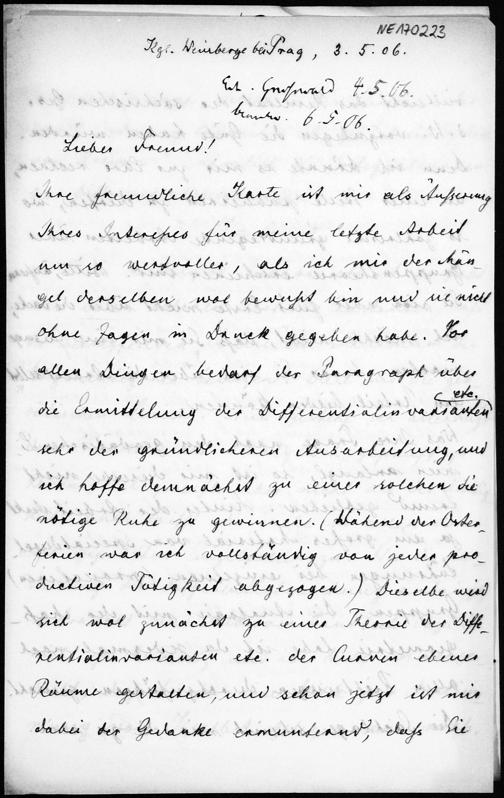 NE170223
Kgl. Weinberge bei Prag, 3. 5. 06.
Erh. Greifswald 4.5.06.
beantw. 6.5.06.
Lieber Freund!
Ihre freundliche Karte ist mir als Äusserung
Ihres Interesses für meine letzte Arbeit
um so wertvoller, als ich mir der Män-
gel derselben wol bewußt bin und sie nicht
ohne Zagen in Druck gegeben habe. Vor
allen Dingen bedarf der Paragraph über
die Ermittelung der Differentialinvarianten etc.
sehr der gründlicheren Ausarbeitung, und
ich hoffe demnächst zu einer solchen die
nötige Ruhe zu gewinnen. (Während der Oster-
ferien war ich vollständig von jeder pro-
ductiven Tätigkeit abgezogen.) Dieselbe wird
sich wol zunächst zu einer Theorie der Diffe-
rentialinvarianten etc. der Curven ebener
Räume gestalten, und schon jetzt ist mir
dabei der Gedanke ermunternd, daß Sie